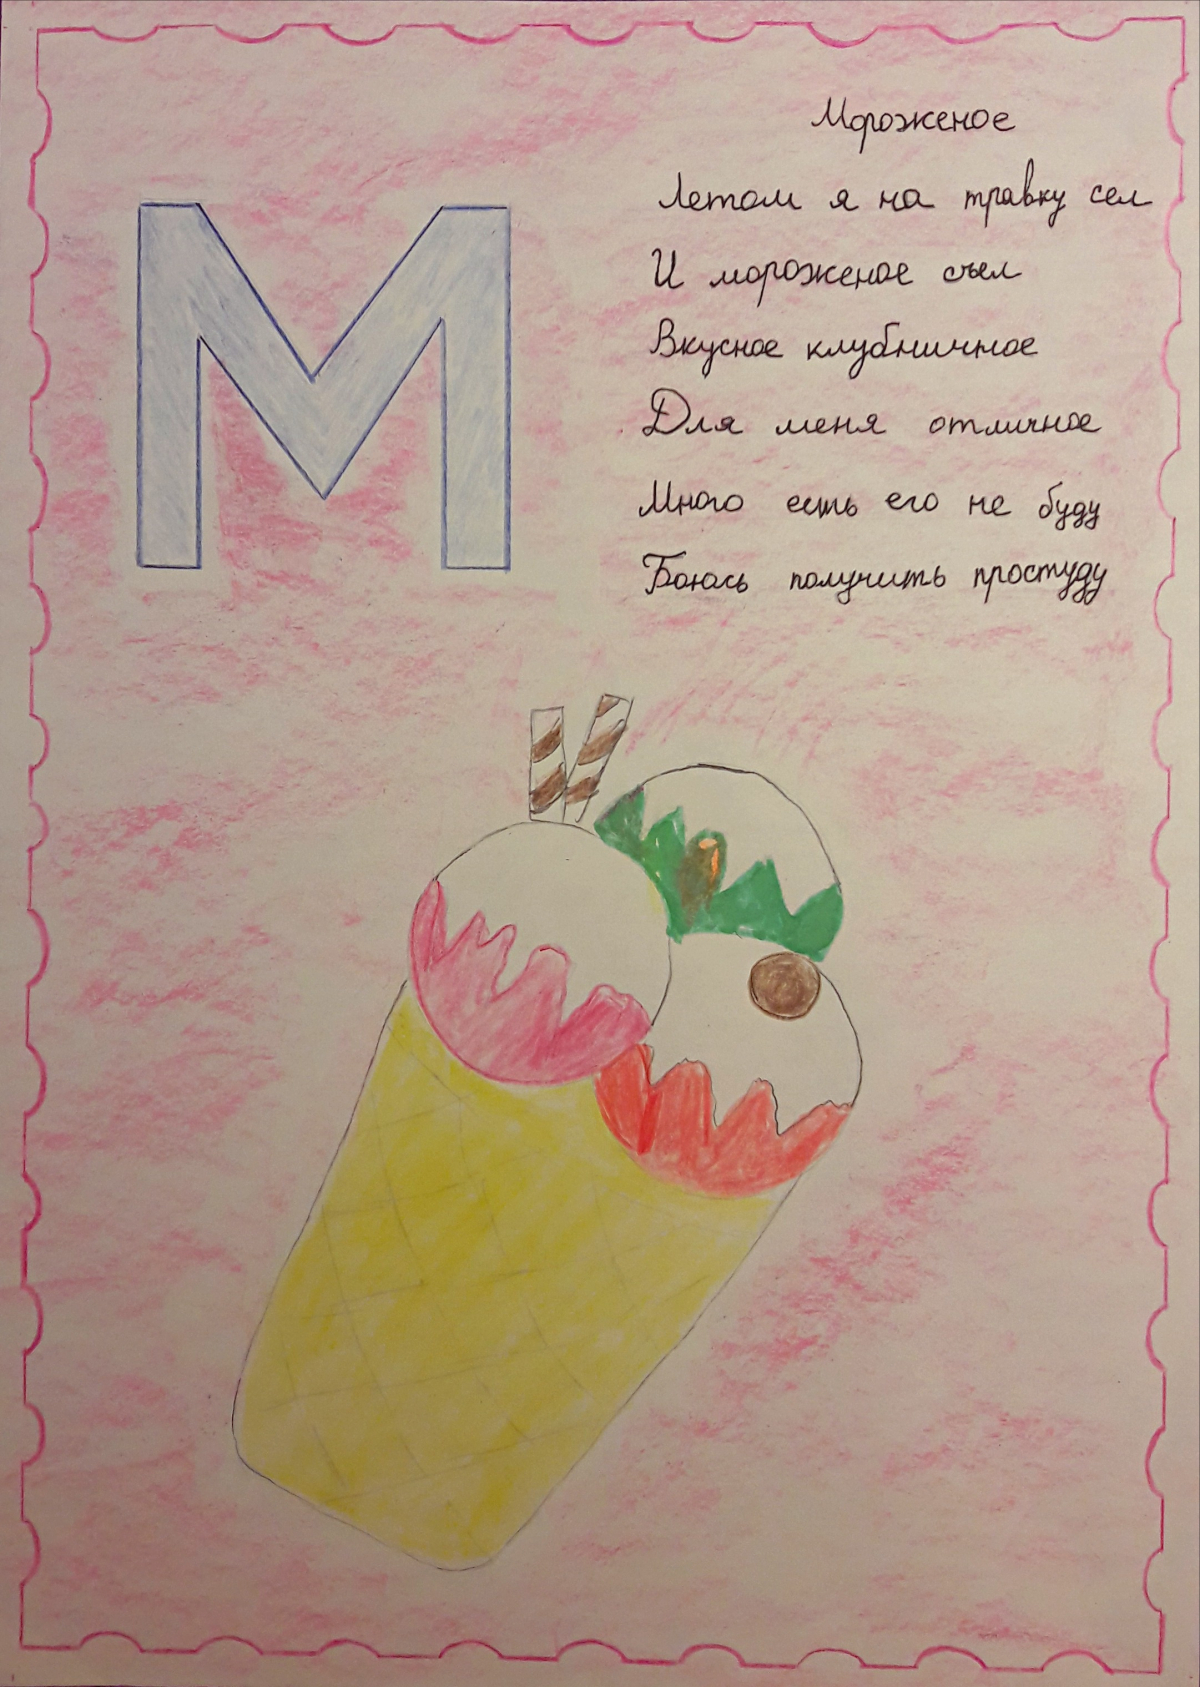 М
Мороженое
Летом я на травку сел
И мороженое съел
Вкусное клубничное
Для меня отличное
Много есть его не буду
Боюсь получить простуду